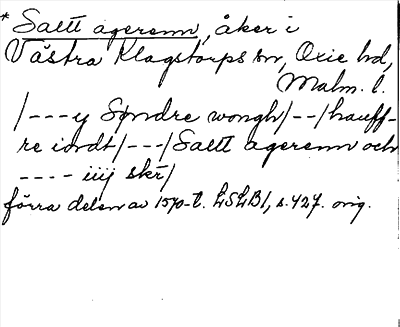 * Saltt agerenn, åker i
Västra Klagstorps sn, Oxie hd,
Malm. l.
/---y Søndre wongh/--/hauff-
re iordt/---/Saltt agerenn och
---- iiij skr/
förra delen av 1570-t. LSLB1, s. 427. orig.